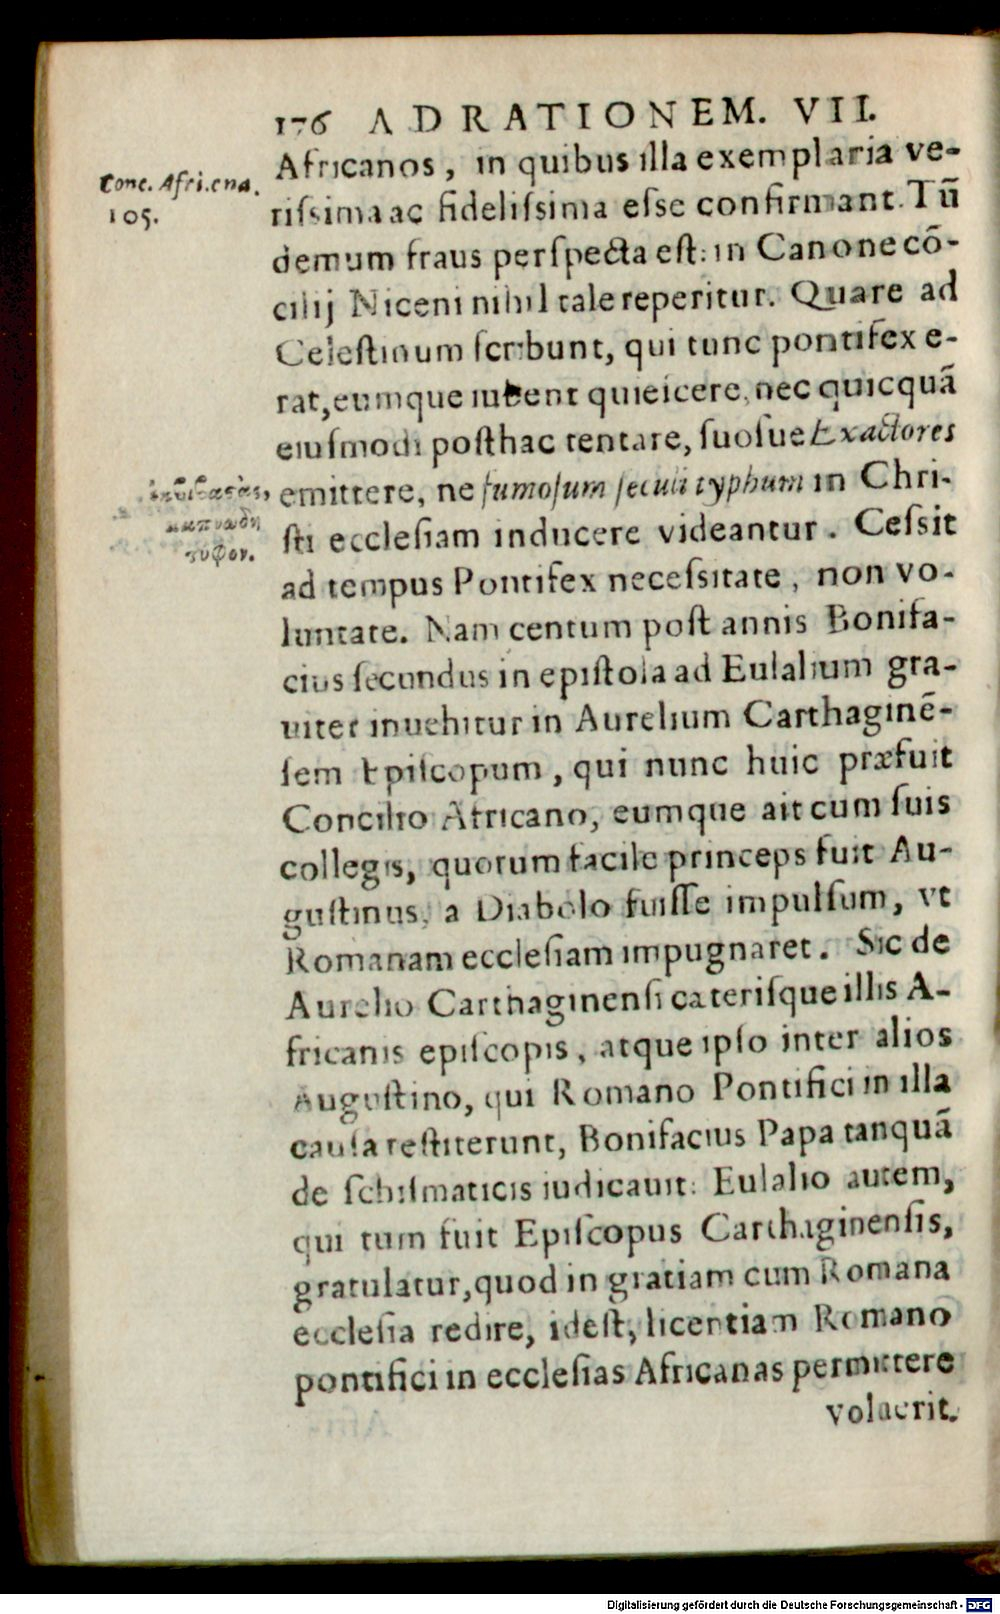 176 AD RATIONEM. VII.
Africanos, in quibus illa exemplaria ve-
Conc. Afri. cna.
105.
rissima ac fidelissima esse confirmant. Tū
demum fraus perspecta est: in Canone cō-
cilij Niceni nihil tale reperitur. Quare ad
Celestinum scribunt, qui tunc pontifex e-
rat, eumque iubent quieicere, nec quicquā
eiusmodi posthac tentare, suosue Exactores
ἐκβιβαστὰς,
καπνώδη
τύφον.
emittere, ne fumosum seculi typhum in Chri-
sti ecclesiam inducere videantur. Cessit
ad tempus Pontifex necessitate, non vo-
luntate. Nam centum post annis Bonifa-
cius secundus in epistola ad Eulalium gra-
uiter inuehitur in Aurelium Carthaginē-
sem Episcopum, qui nunc huic præfuit
Concilio Africano, eumque ait cum suis
collegis, quorum facile princeps fuit Au-
gustinus, a Diabolo fuisse impulsum, vt
Romanam ecclesiam impugnaret. Sic de
Aurelio Carthaginensi caterisque illis A-
fricanis episcopis, atque ipso inter alios
Augustino, qui Romano Pontifici in illa
causa restiterunt, Bonifacius Papa tanquā
de schismaticis iudicauit. Eulalio autem,
qui tum fuit Episcopus Carthaginensis,
gratulatur, quod in gratiam cum Romana
ecclesia redire, idest, licentiam Romano
pontifici in ecclesias Africanas permittere
voluerit.
Digitalisierung gefördert durch die Deutsche Forschungsgemeinschaft - DFG